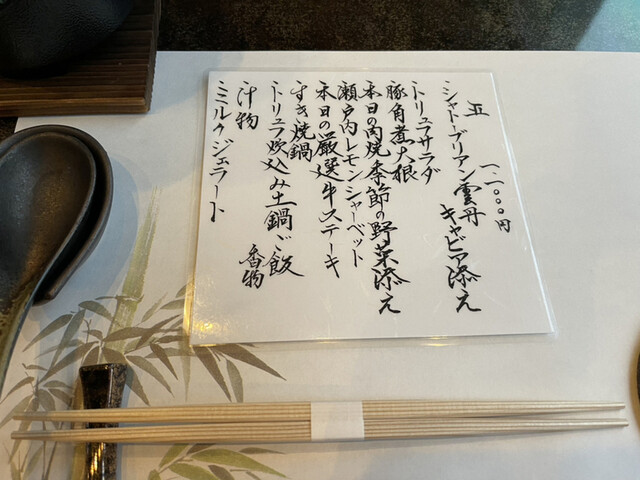 五
一一、〇〇〇円
シャトーブリアン雲丹
キャビア添え
トリュフサラダ
豚角煮大根
本日の肉焼季節の野菜添え
瀬戸内レモンシャーベット
本日の厳選牛ステーキ
すき焼鍋
トリュフ炊込み土鍋ご飯
香物
汁物
ミルクジェラート